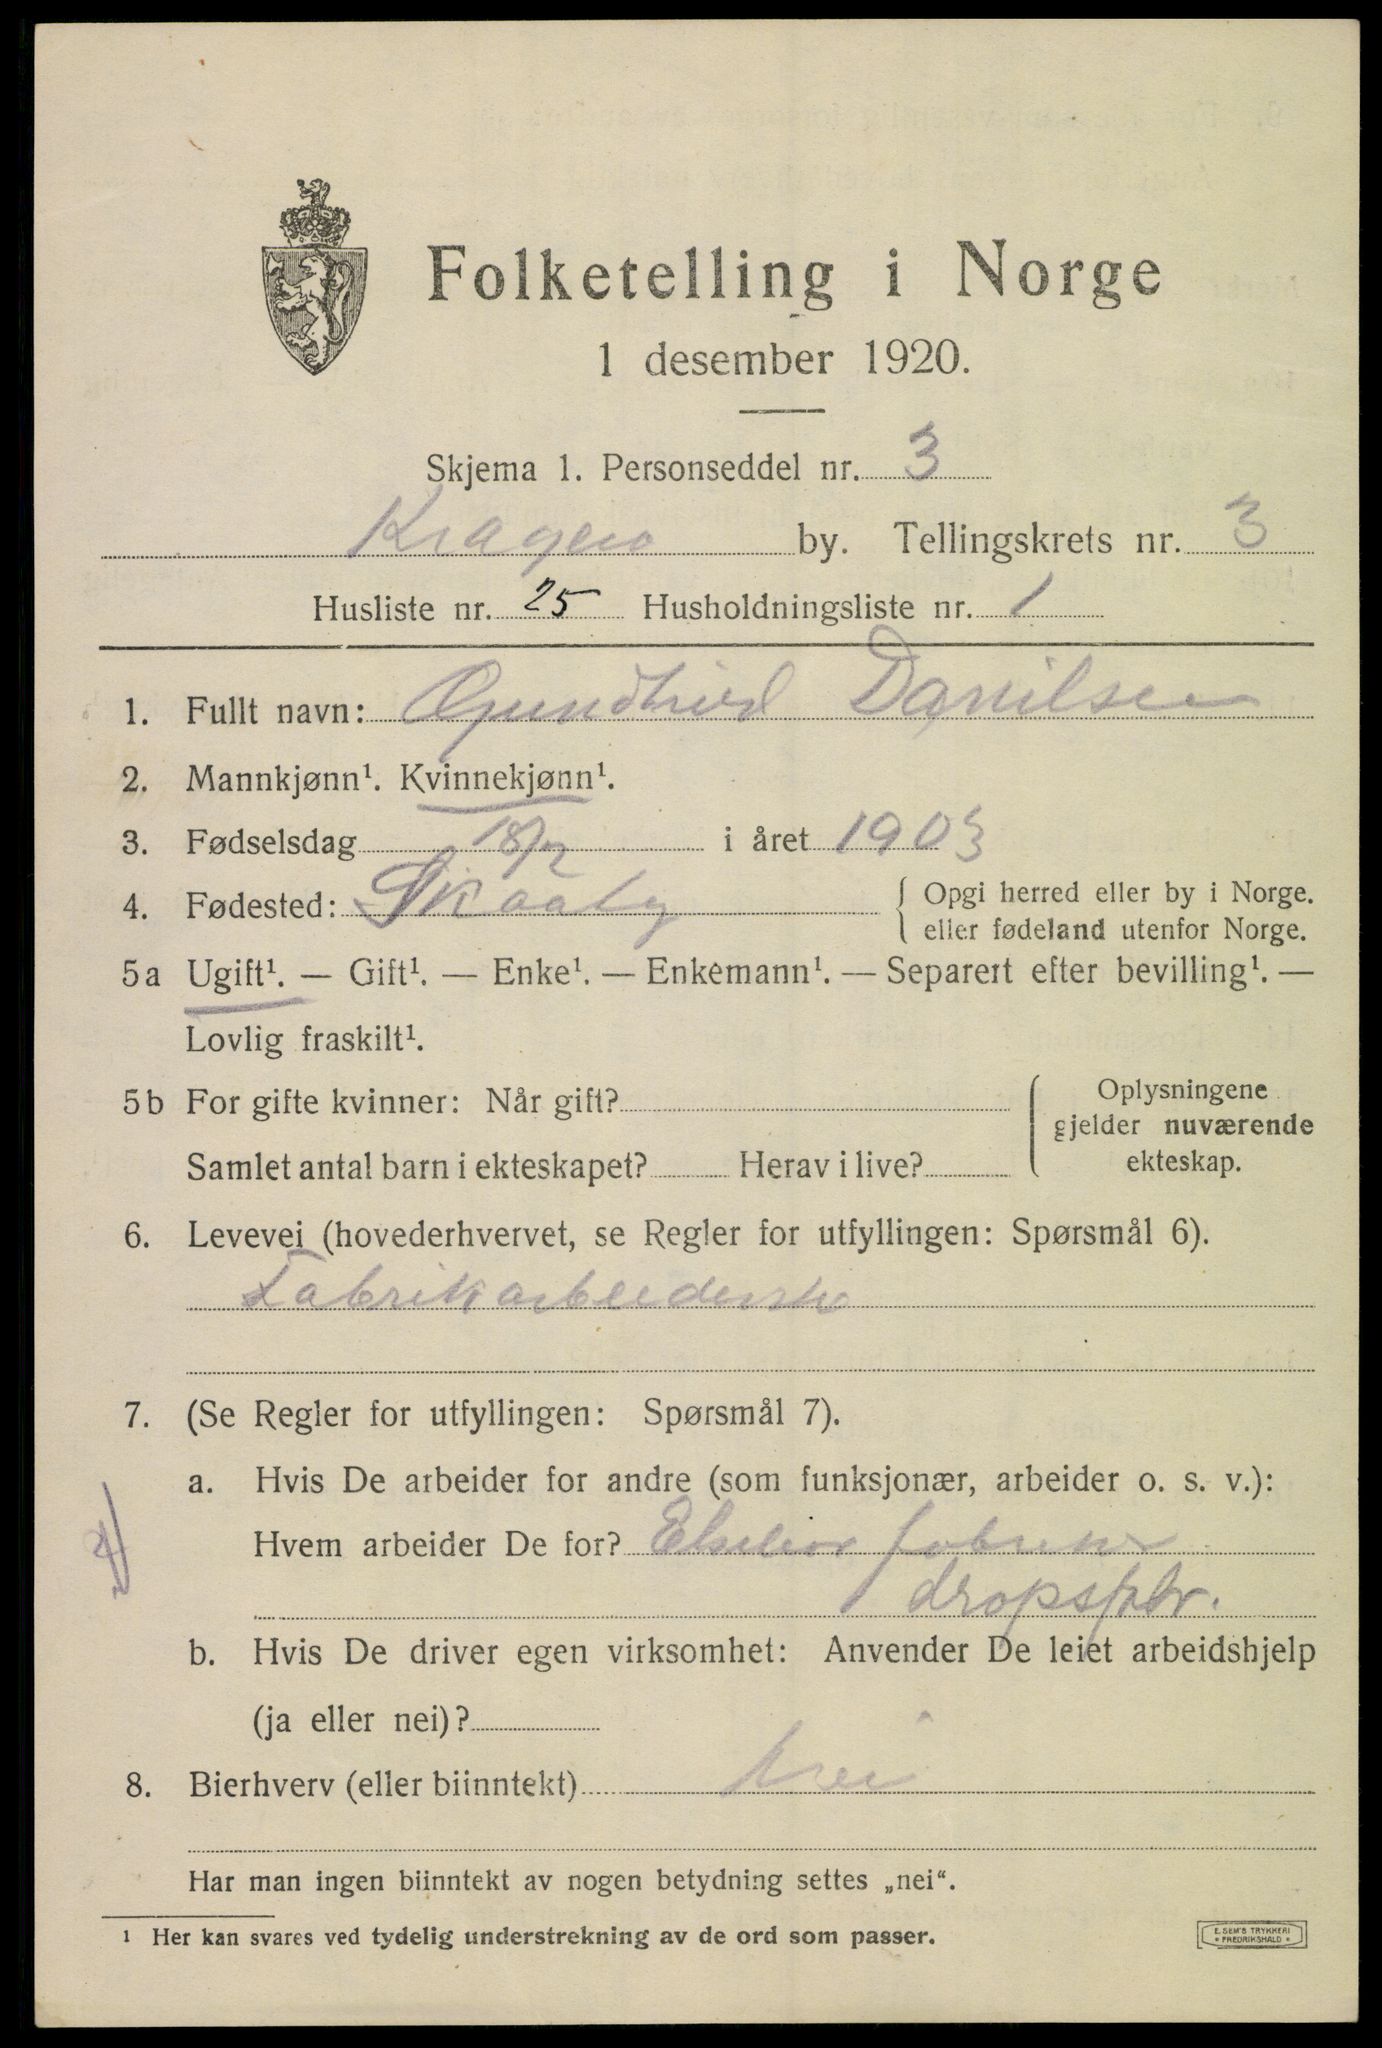 Folketelling i Norge
1 desember 1920.
Skjema 1. Personseddel nr. 3
Kragerø by. Tellingskrets nr. 3
Husliste nr. 25 Husholdningsliste nr. 1
1. Fullt navn: Gundhild Danilsen
2. Mannkjønn¹. Kvinnekjønn¹.
3. Fødselsdag 18/2 i året 1903
4. Fødested: Skaaty { Opgi herred eller by i Norge.
eller fødeland utenfor Norge.
5a Ugift¹. — Gift¹. — Enke¹. — Enkemann¹. — Separert efter bevilling¹. —
Lovlig fraskilt¹.
5b For gifte kvinner: Når gift?
Samlet antal barn i ekteskapet? Herav i live?
Oplysningene
gjelder nuværende
ekteskap.
6. Levevei (hovederhvervet, se Regler for utfyllingen: Spørsmål 6).
Fabrikarbeiderske
7. (Se Regler for utfyllingen: Spørsmål 7).
a. Hvis De arbeider for andre (som funksjonær, arbeider o. s. v.):
Hvem arbeider De for?
dropsfabr.
b. Hvis De driver egen virksomhet: Anvender De leiet arbeidshjelp
(ja eller nei)?
8. Bierhverv (eller biinntekt) Nei
Har man ingen biinntekt av nogen betydning settes „nei“.
¹ Her kan svares ved tydelig understrekning av de ord som passer.
E. SEM'S TRYKKERI
FREDRIKSHALD